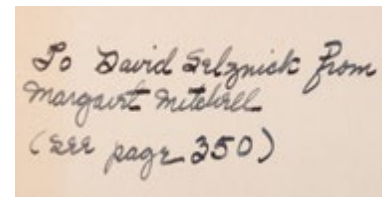 To David Selznick from
Margaret Mitchell
(see page 350)